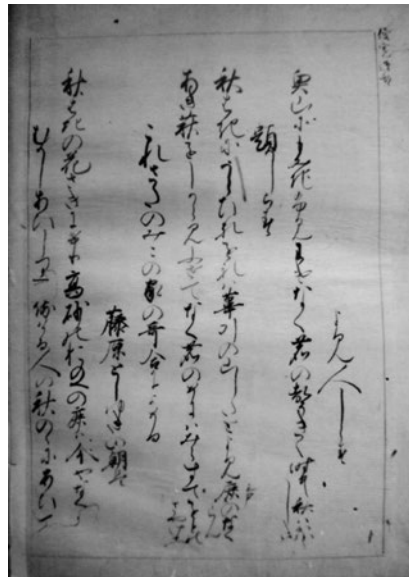 よみ人しらす
奥山にもみちふみわけなく鹿の聲きく時そ秋はかなしき
題しらす
秋はきにうらひれをれは葦引の山したとよみ鹿のなくらん
あき萩をしからみふせてなく鹿のめにはみえすてをとのさやけさ
これさたのみこの家の哥合によめる
藤原としゆきの朝臣
秋はきの花さきにけり高砂のおのへの鹿は今やなくらん
むかしあひしりて侍ける人の秋のゝにあひて